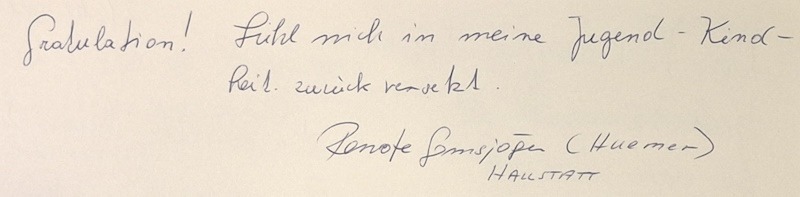 Gratulation! Fühl mich in meine Jugend-Kind-
heit. zurück versetzt.
Renate Gamsjäger (Huemer)
HALLSTATT